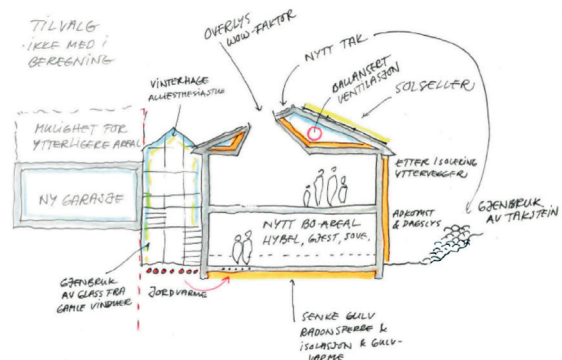 TILVALG
IKKE MED I
BEREGNING
OVERLYS
WOW-FAKTOR
NYTT TAK
BALLANSERT
VENTILASJON
SOLSELLER
VINTERHAGE
ALLIESTHESIASTUE
MULIGHET FOR
YTTERLIGERE AREAL
NY GARASJE
ETTER ISOLERING
YTTERVEGGER
GJENBRUK
AV TAKSTEIN
NYTT BO-AREAL
HYBEL, GJEST, SOVE.
ADKOMST
& DAGSLYS
GJENBRUK
AV GLASS FRA
GAMLE VINDUER
JORDVARME
SENKE GULV
RADONSPERRE &
ISOLASJON & GULV-
VARME